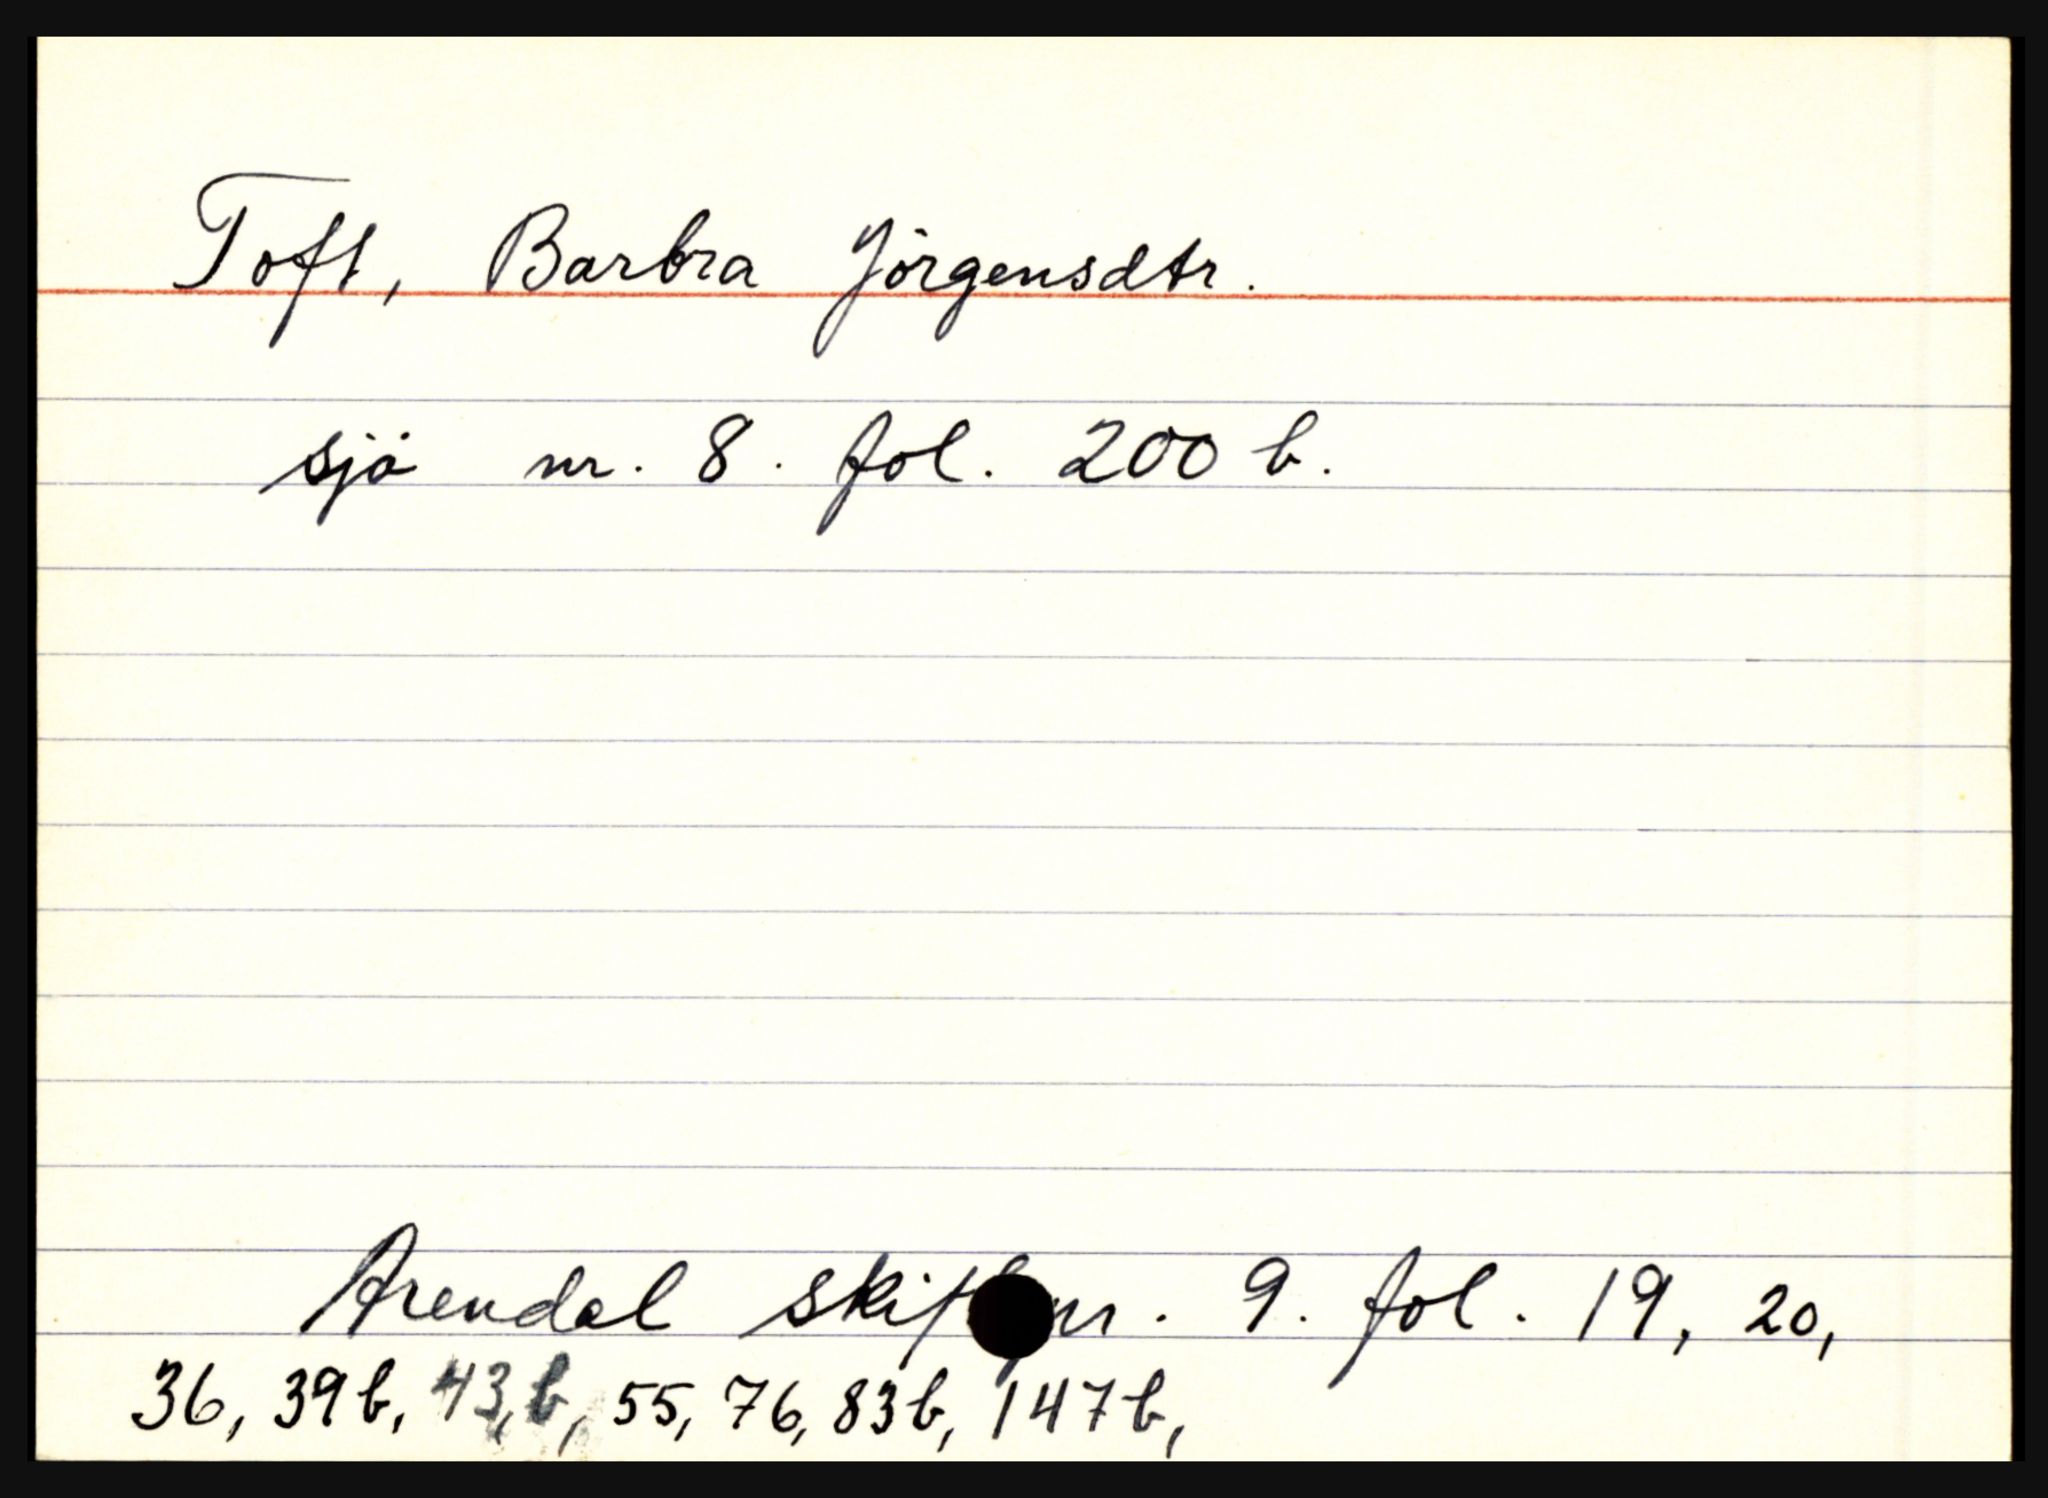 Toft, Barbra Jörgensdtr.
sjö nr. 8. fol. 200 b.
Arendal skift nr. 9. fol. 19, 20,
36, 39b, 43,b, 55, 76, 83b, 147b,